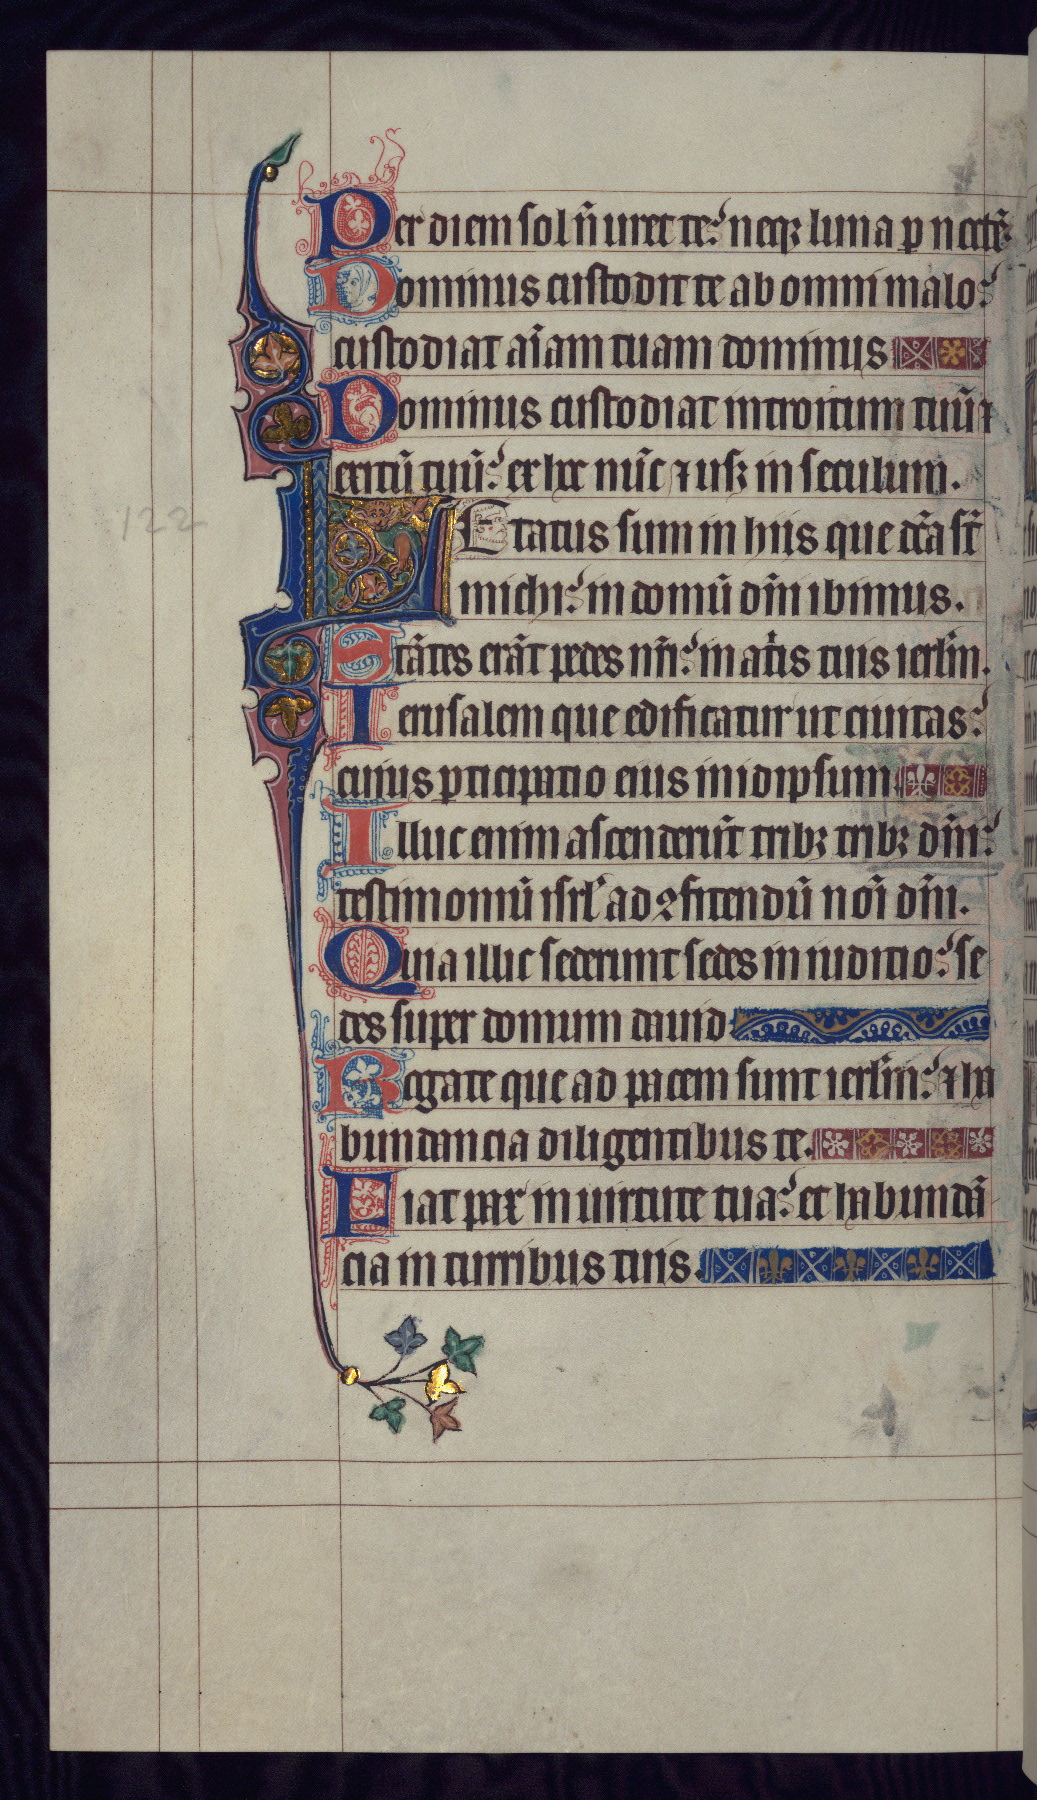 Per diem sol ñ uret te: neqꝫ luna p noctẽ.
Dominus custodit te ab omni malo:
custodiat aĩam tuam dominus
Dominus custodiat introitum tuũ ⁊
exitũ tuũ: ex hoc nũc ⁊ usqꝫ in seculum.
122
LEtatus sum in hiis que dc̃a st̃
michi: in domũ dñi ibimus.
Stãtes erãt pedes nr̃i: in atˡis tuis ierlˡm.
Ierusalem que edificatur ut ciuitas:
cuius ꝑticipatio eius in idipsum.
Illuc enim ascenderũt tribꝫ tribꝫ dñi:
testimoniũ isrl̃ ad ꝯfitendũ noĩ dñi.
Quia illic sederunt sedes in iuditio: se
des super domum dauid.
Rogate que ad pacem sunt ierlˡm: ⁊ ha
bundancia diligentibus te.
Fiat pax in uirtute tua: et habundã
cia in turribus tuis.